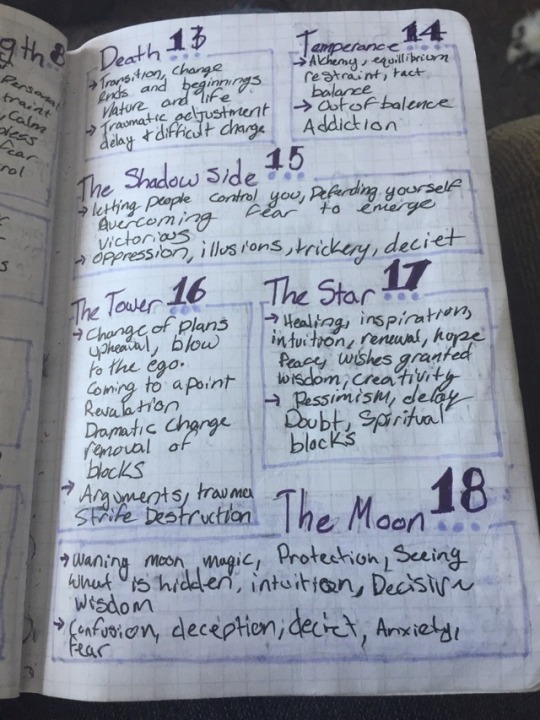 gth 8
Personal
traint
, Calm
fear
rol
s
Death 13
→ Transition, change
ends and beginnings
Nature and life
→ Traumatic adjustment
delay & difficult change
Temperance 14
→ Alchemy, equilibrium
restraint, tact
balance
→ Out of balence
Addiction
The Shadow Side 15
→ letting people control you, Defending yourself
Overcoming fear to emerge
victorious
→ oppression, illusions, trickery, deciet
The Tower 16
→ Change of Plans
upheaval, blow
to the ego.
Coming to a point
Revalation
Dramatic Change
removal of
blocks
→ Arguments, trauma
Strife Destruction
The Star 17
→ Healing, inspiration,
intuition, renewal, hope
Peace, wishes granted
wisdom, creativity
→ Pessimism, delay
Doubt, Spiritual
blocks
The Moon 18
→ Waning moon magic, Protection, Seeing
what is hidden, intuition, Decisive
wisdom
→ Confusion, deception, deciet, Anxiety,
Fear